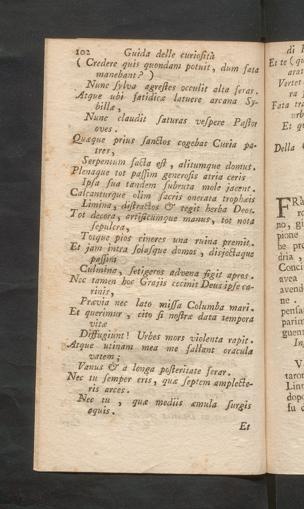 102 Guida delle curiosità
( Credere quis quondam potuit, dum fata
manebant? )
Nunc sylva agrestes occulit alta feras.
Atque ubi fatidicæ latuere arcana Sy-
billæ,
Nunc claudit saturas vespere Pastor
oves.
Quæque prius sanctos cogebat Curia pa-
tres,
Serpentum facta est, alitumque domus.
Plenaque tot passim generosis atria ceris
Ipsa sua tandem subruta mole jacent.
Calcanturque olim sacris onerata trophæis
Limina, distractos & tegit herba Deos.
Tot decora, artificumque manus, tot nota
sepulcra,
Totque pios cineres una ruina premit.
Et jam intra solasque domos, disjectaque
passim
Culmina, setigeros advena figit apros.
Nec tamen hoc Grajis cecinit Deus ipse ca-
rinis,
Prævia nec lato missa Columba mari.
Et querimur, cito si nostræ data tempora
vitæ
Diffugiunt! Urbes mors violenta rapit.
Atque utinam mea me fallant oracula
vatem;
Vanus & a longa posteritate ferar.
Nec tu semper eris, quæ septem amplecte-
ris arces.
Nec tu, quæ mediis æmula surgis
aquis.
Et